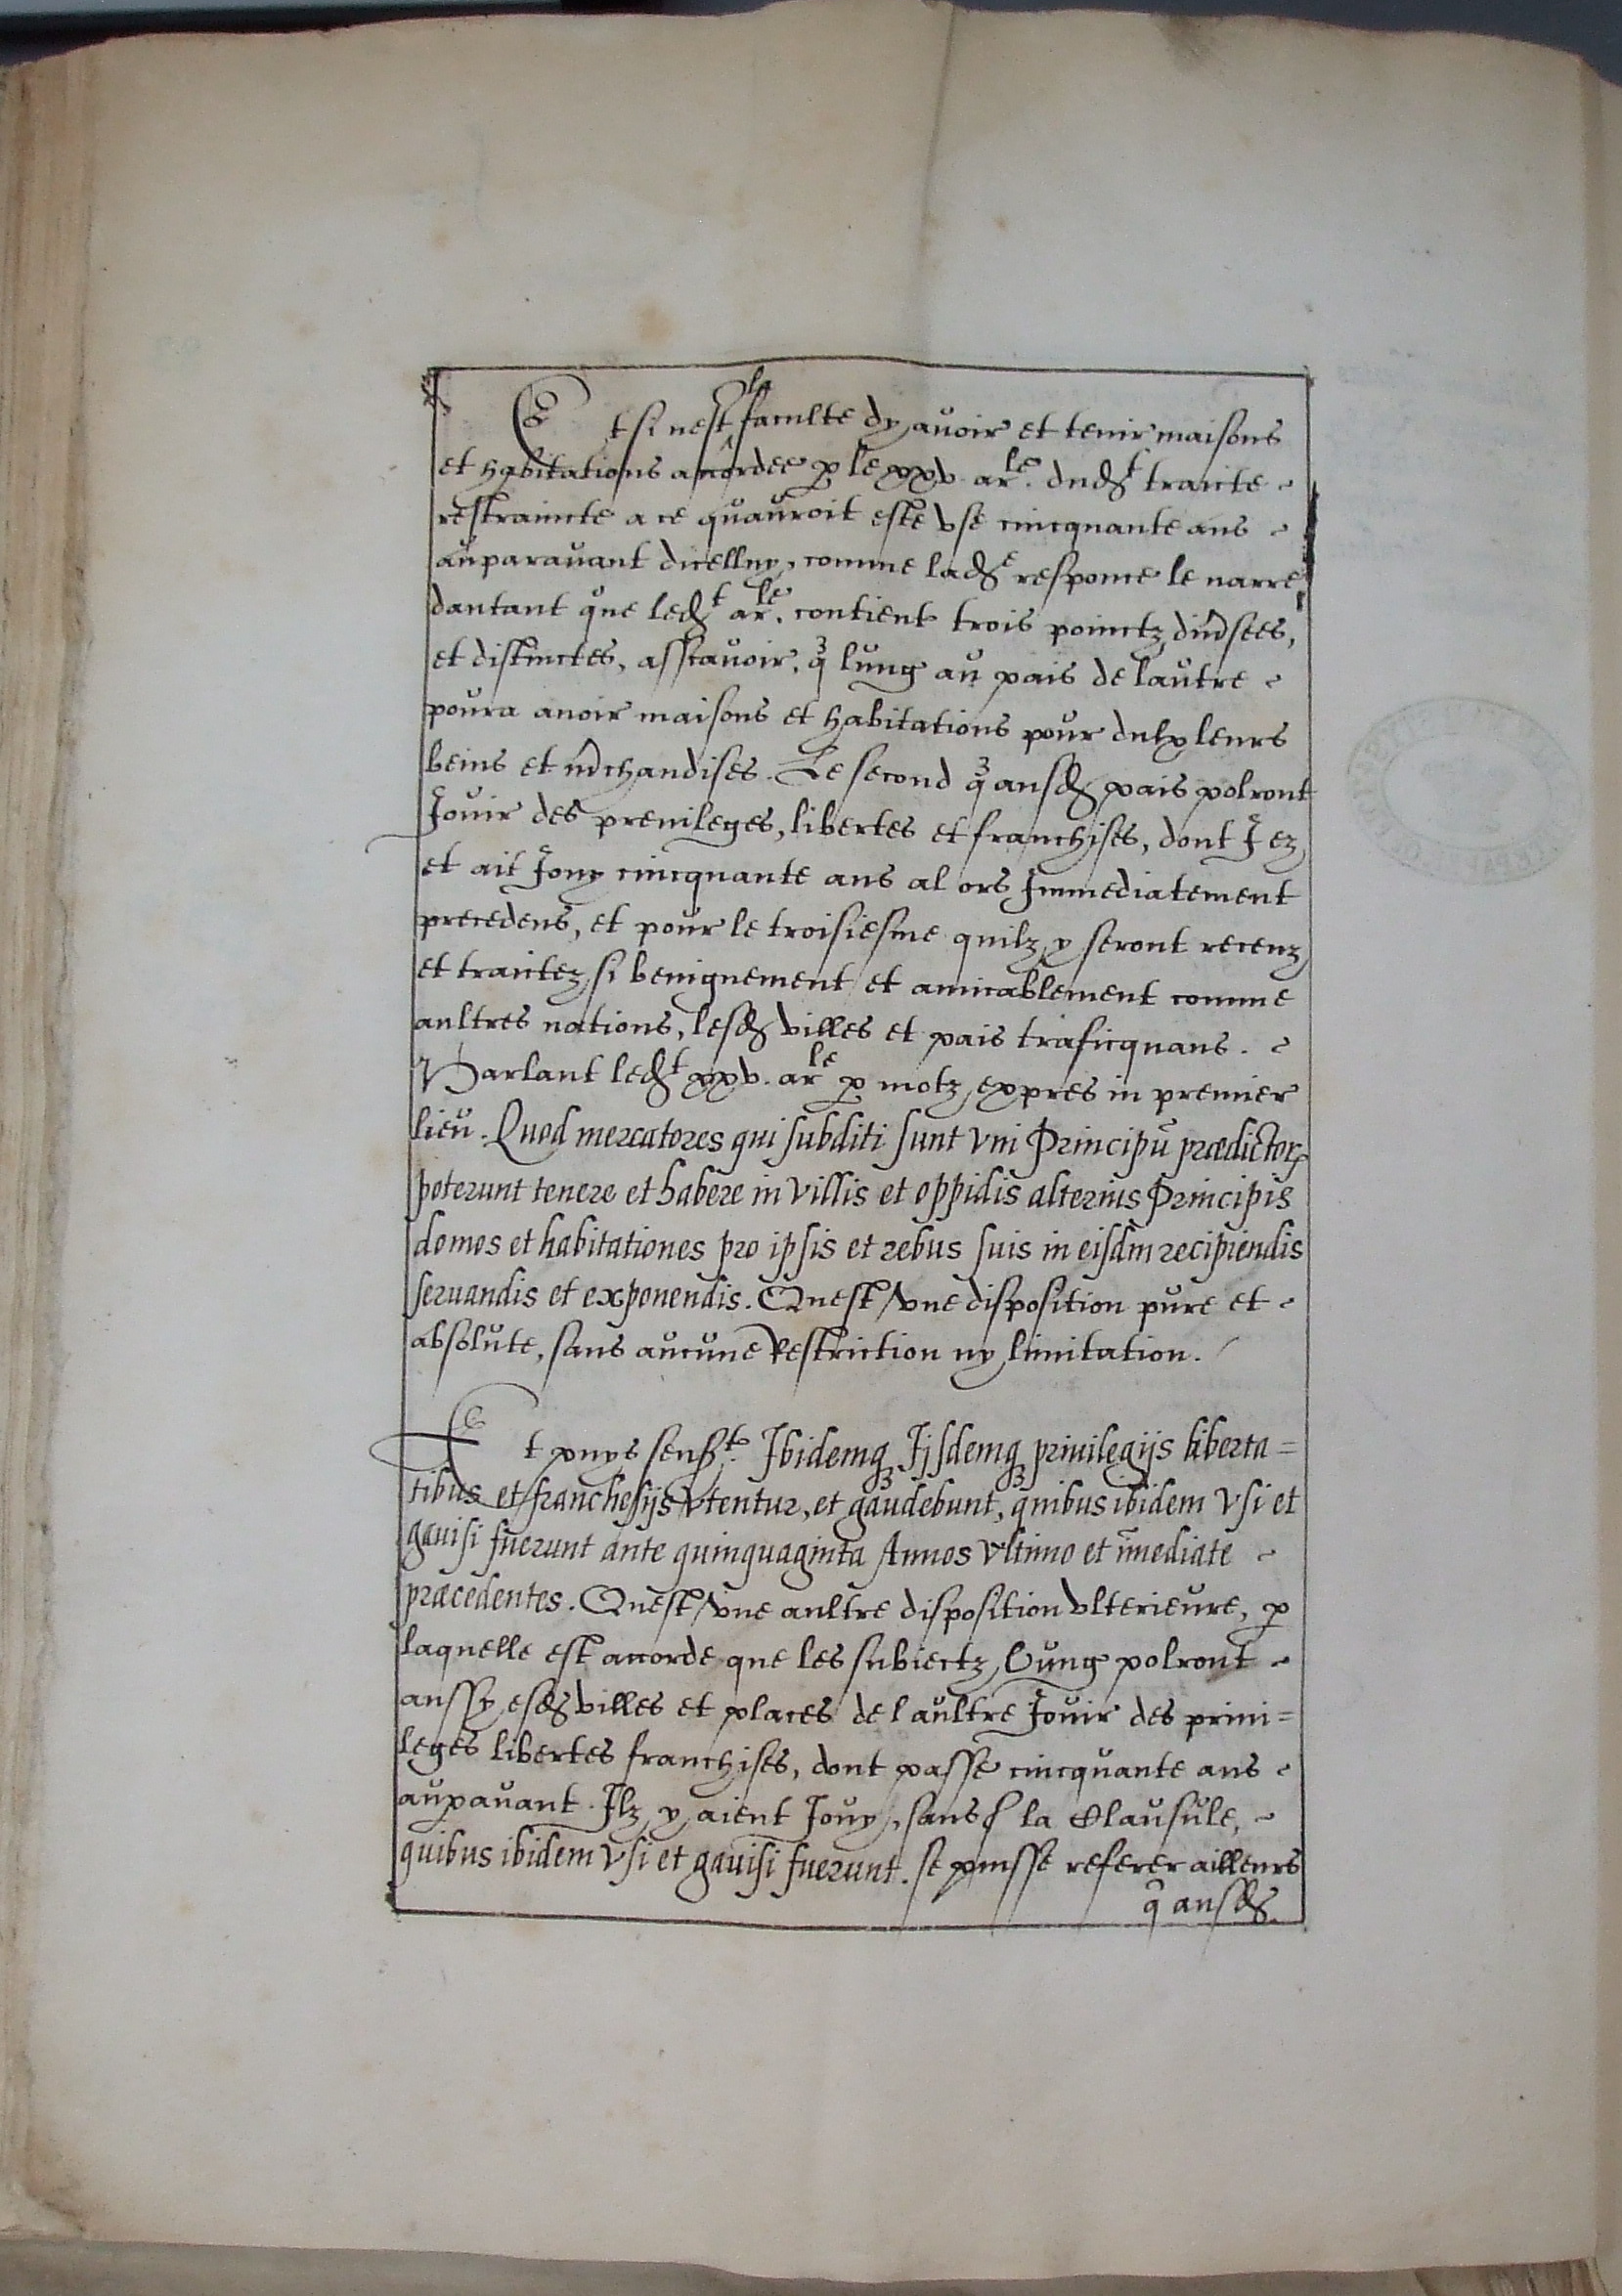 Et si nest la faculte dy avoir et tenir maisons
et habitations acordee p le xxv. arle. dudt traicte
restraincte a ce quauroit este vse cincquante ans
auparavant dicelluy, comme lade responce le narre,
dautant que ledt arle. contient trois poinctz diuersees,
et distinctes, asscauoir, q lung au pais de lautre
poura auoir maisons et habitations pour eulx leurs
beins et mchandises. Le second q ausd pais polront
Jouir des preuileges, libertes et franchises, dont J ez
et ait Jouy cincquante ans al ors Jmmediatement
precedens, et pour le troisiesme quilz y seront receuz
et traictez si benignement et amicablement comme
aultres nations, lesd villes et pais traficquans.
Parlant ledt xxv. arle p motz expres in premier
lieu. Quod mercatores qui subditi sunt vni Principū prædictor
poterunt tenere et habere in villis et oppidis alterius Principis
domos et habitationes pro ipsis et rebus suis in eisdm recipiendis
seruandis et exponendis. Quest vne disposition pure et
absolute, sans aucune Restriction ny limitation.
Et puys senst. Jbidemq Jjsdemq priuilegijs liberta=
tibus et franchesijs vtentur, et gaudebunt, quibus ibidem vsi et
gauisi fuerunt ante quinquaginta Annos vltimo et īmediate
præcedentes. Quest vne aultre disposition vlterieure, p
laquelle est acorde que les subiectz Lung polront
aussy esd villes et places de l aultre Jouir des priui=
leges libertes franchises, dont passe cincquante ans
aupauant Jlz y aient Jouy, sans q la Clausule,
quibus ibidem vsi et gauisi fuerunt. se puisse referer ailleurs
q ausd.